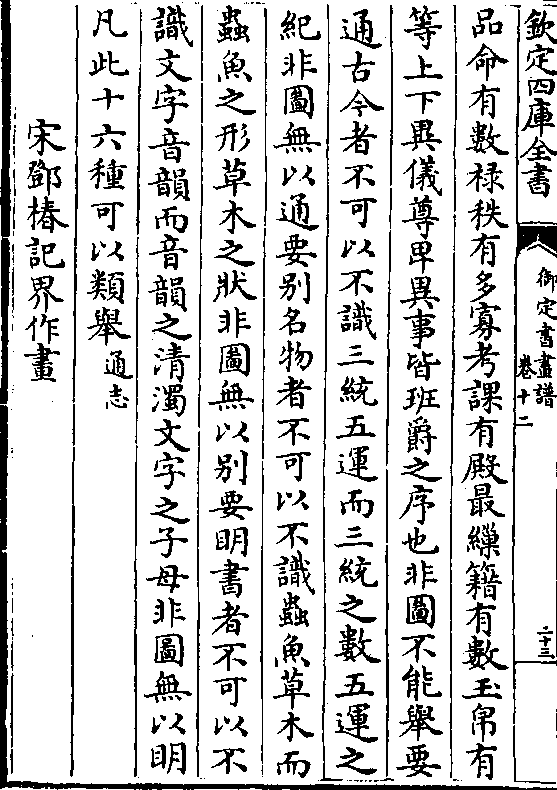 欽定四庫全書
御定書畫譜
卷十二
二十三
品命有數祿秩有多寡考課有殿最繅籍有數玉帛有
等上下異儀尊卑異事皆班爵之序也非圖不能舉要
通古今者不可以不識三統五運而三統之數五運之
紀非圖無以通要别名物者不可以不識蟲魚草木而
蟲魚之形草木之狀非圖無以别要明書者不可以不
識文字音韻而音韻之清濁文字之子母非圖無以明
凡此十六種可以類舉通志
宋鄧椿記界作畫